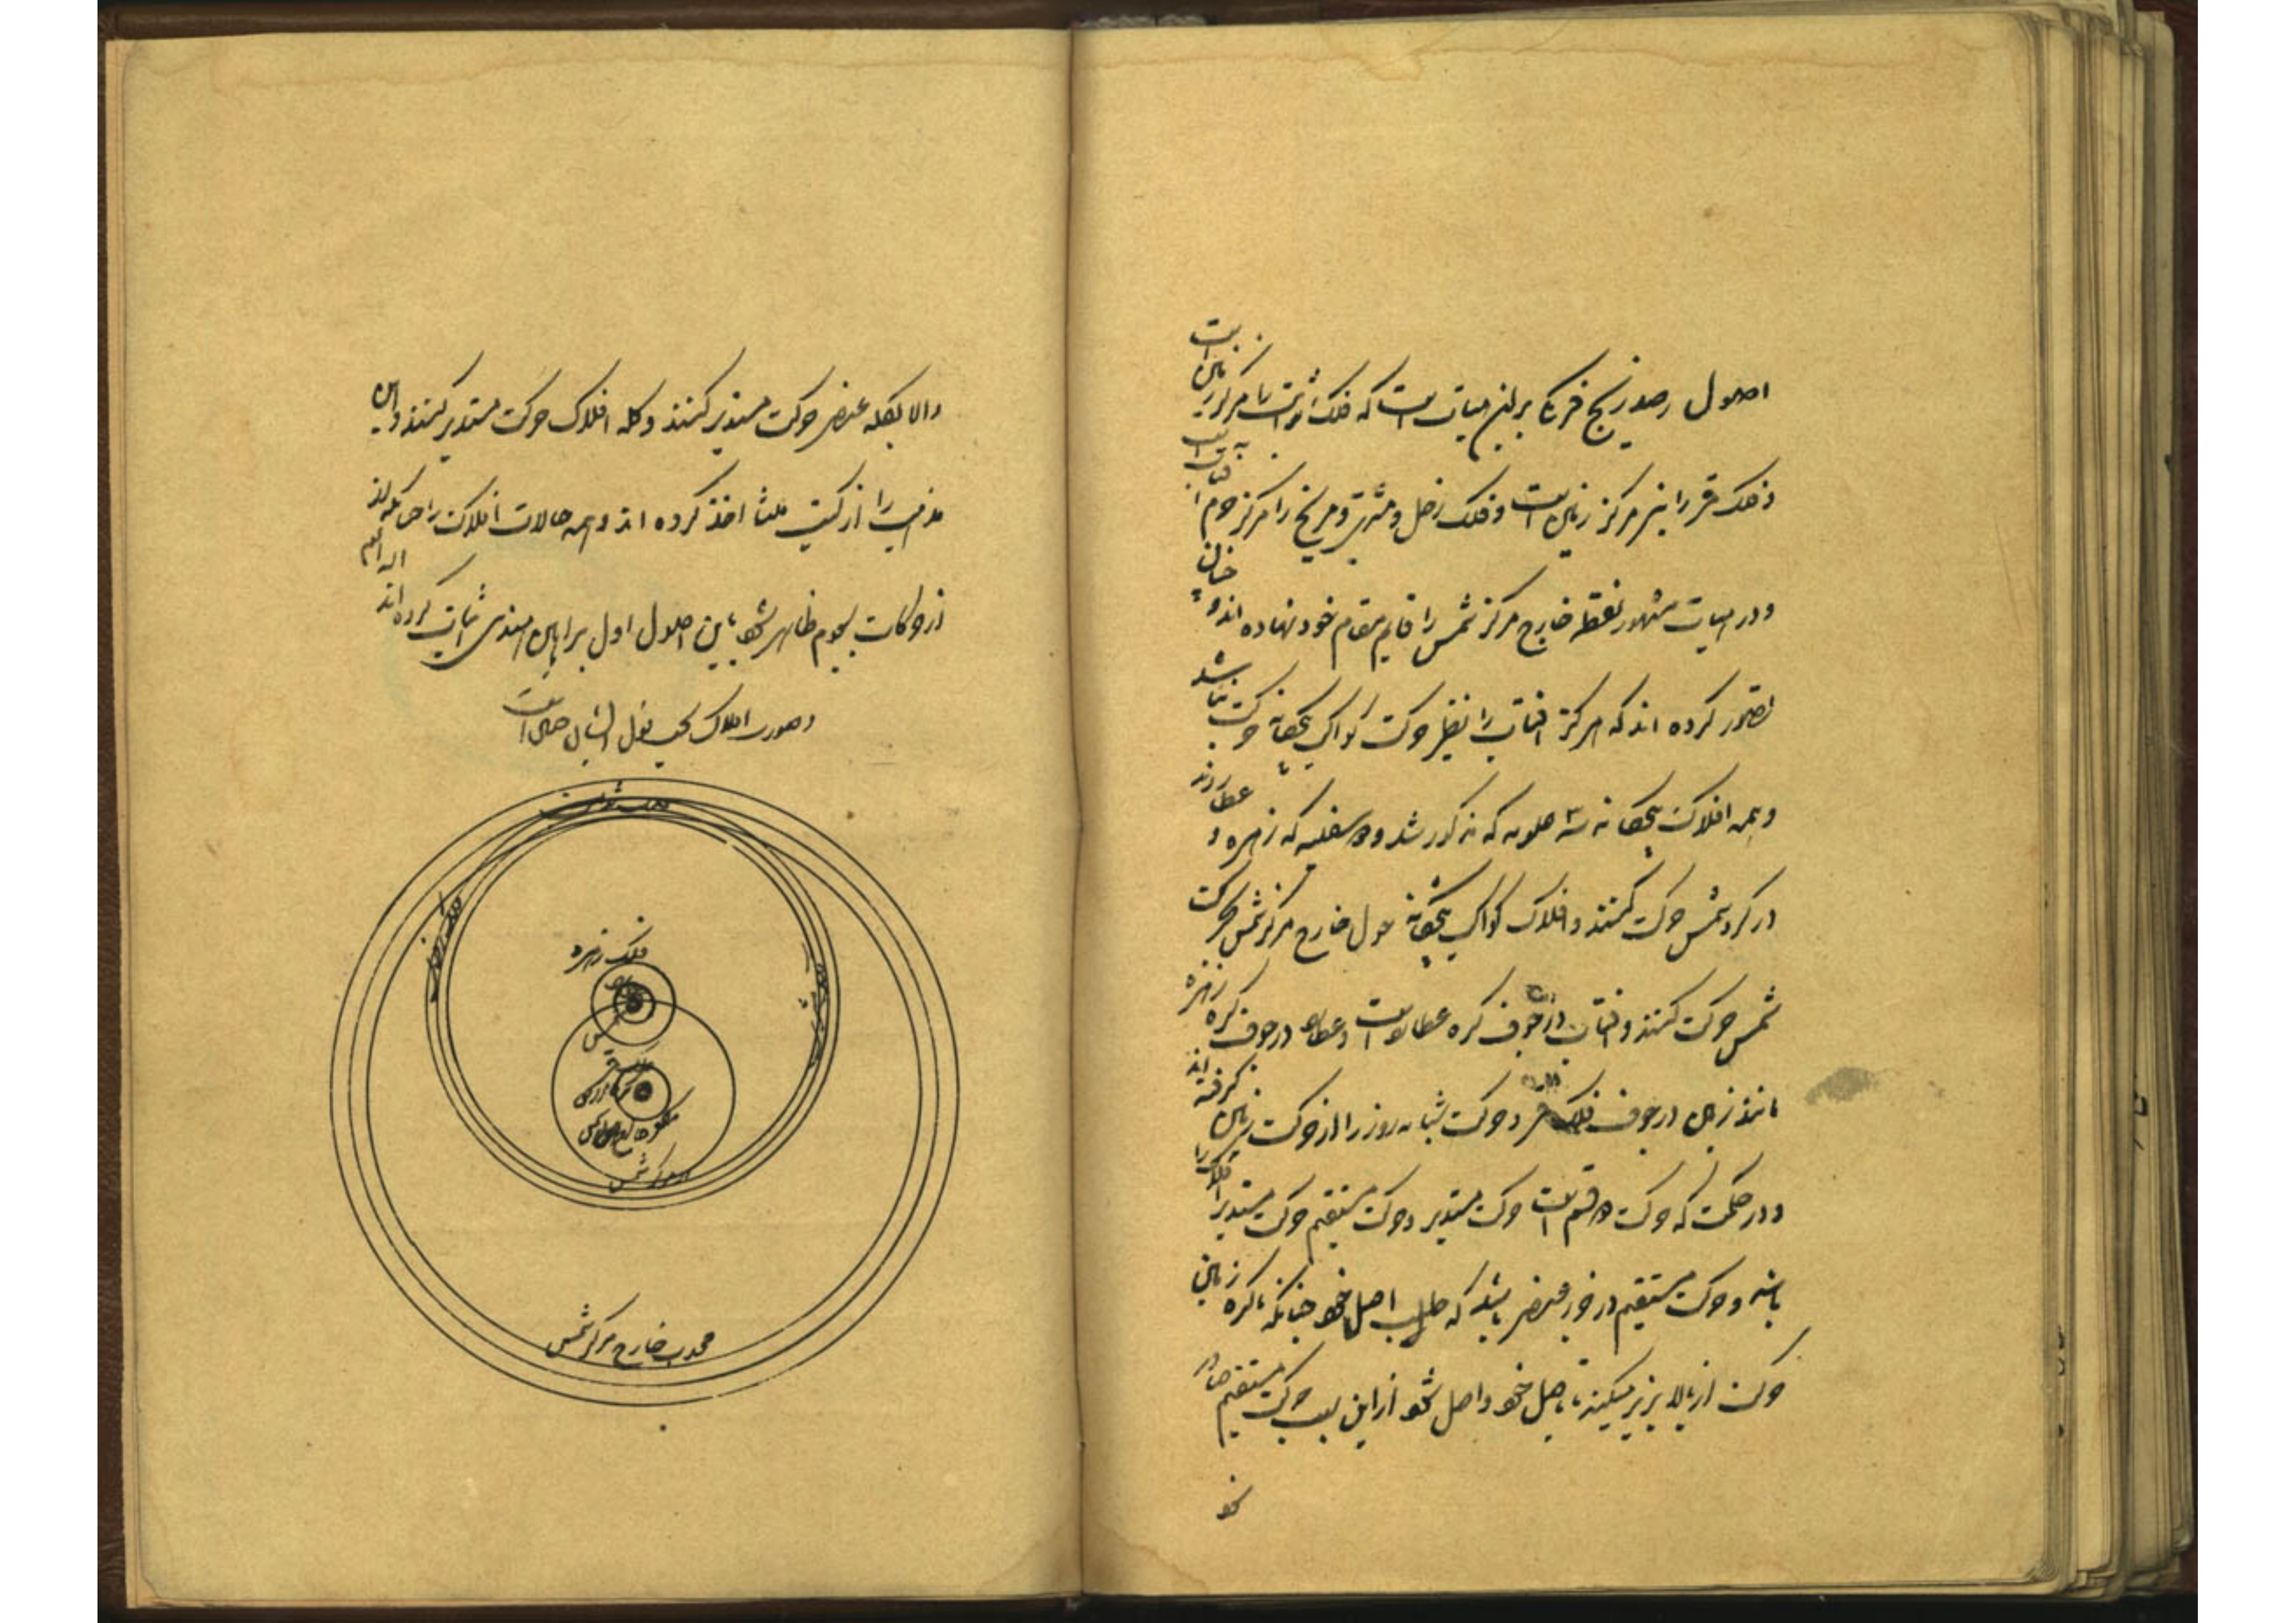 اصول رصد زیج فرنگ برین هیات است که فلک ثوابت را مرکز زمین است
و فلک قمر را نیز مرکز زمین است و فلک زحل و مشتری و مریخ را مرکز جرم افتاب است
و در هیات مشهور نقطه خارج مرکز شمس را قایم مقام خود نهاده اند و چنان
تصور کرده اند که مرکز افتاب را نظر حرکت کواکب پنجگانه حرکت نباشد
و همه افلاک پنجگانه سه علویه که مذکور شد و دو سفلیه که زهره و عطاردند
در گرد شمس حرکت کنند و افلاک کواکب پنجگانه حول خارج مرکز شمس بحرکت
شمس حرکت کنند و افتاب در جوف کره عطارد است و عطارد در جوف کره زهره
مانند زمین در جوف فلک قمر و حرکت شبانه روز را از حرکت زمین گرفته اند
و در حکمت که حرکت دو قسم است حرکت مستدیر و حرکت مستقیم حرکت مستدیر افلاک را
باشد و حرکت مستقیم در خور عنصر باشد که طلب اصل خود چنانکه کره زمین
حرکت از بالا بزیر میکند تا باصل خود واصل شود از این سبب حرکت مستقیم
والا بکله عنصر حرکت مستدیر کنند و کله افلاک حرکت مستدیر کنند و این
مذهب را از کتب اخذ کرده اند و همه حالات افلاک را چنانکه
از حرکات نجوم ظاهر شود باین اصول اول براهین هندسی اثبات کرده اند
و صورت افلاک بحسب قول ایشان چنین است
فلک ثوابت
فلک زهره
شمس
فلک قمر
کره ارض
مرکز شمس
محدب خارج مرکز شمس